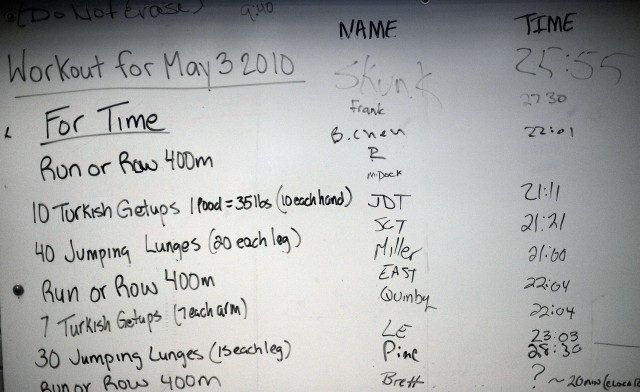 (Do Not Erase) 9:40
NAME TIME
Workout for May 3 2010
Skunk 25:55
Frank 27 30
For Time
B. Chen 22:01
R
Run or Row 400m
M.Dock
10 Turkish Getups 1 Pood = 35 lbs (10 each hand)
JDT 21:11
SCT 21:21
40 Jumping Lunges (20 each leg)
Miller 21:60
EAST 22:04
Run or Row 400m
Quimby 22:04
7 Turkish Getups (7 each arm)
LE 23:03
30 Jumping Lunges (15 each leg)
Pine 28:30
Run or Row 400m
Brett ? ~ 20 min